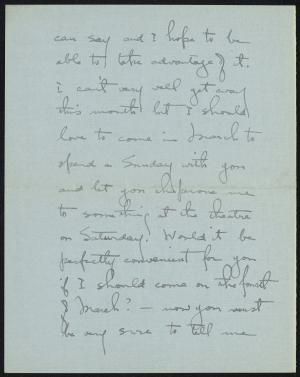 can say and I hope to be
able to take advantage of it.
I can't very well get away
this month but I should
love to come in March to
spend a Sunday with you
and let you chaperone me
to something at the theatre
on Saturday. Would it be
perfectly convenient for you
if I should come on the first
of March? – now you must
be very sure to tell me